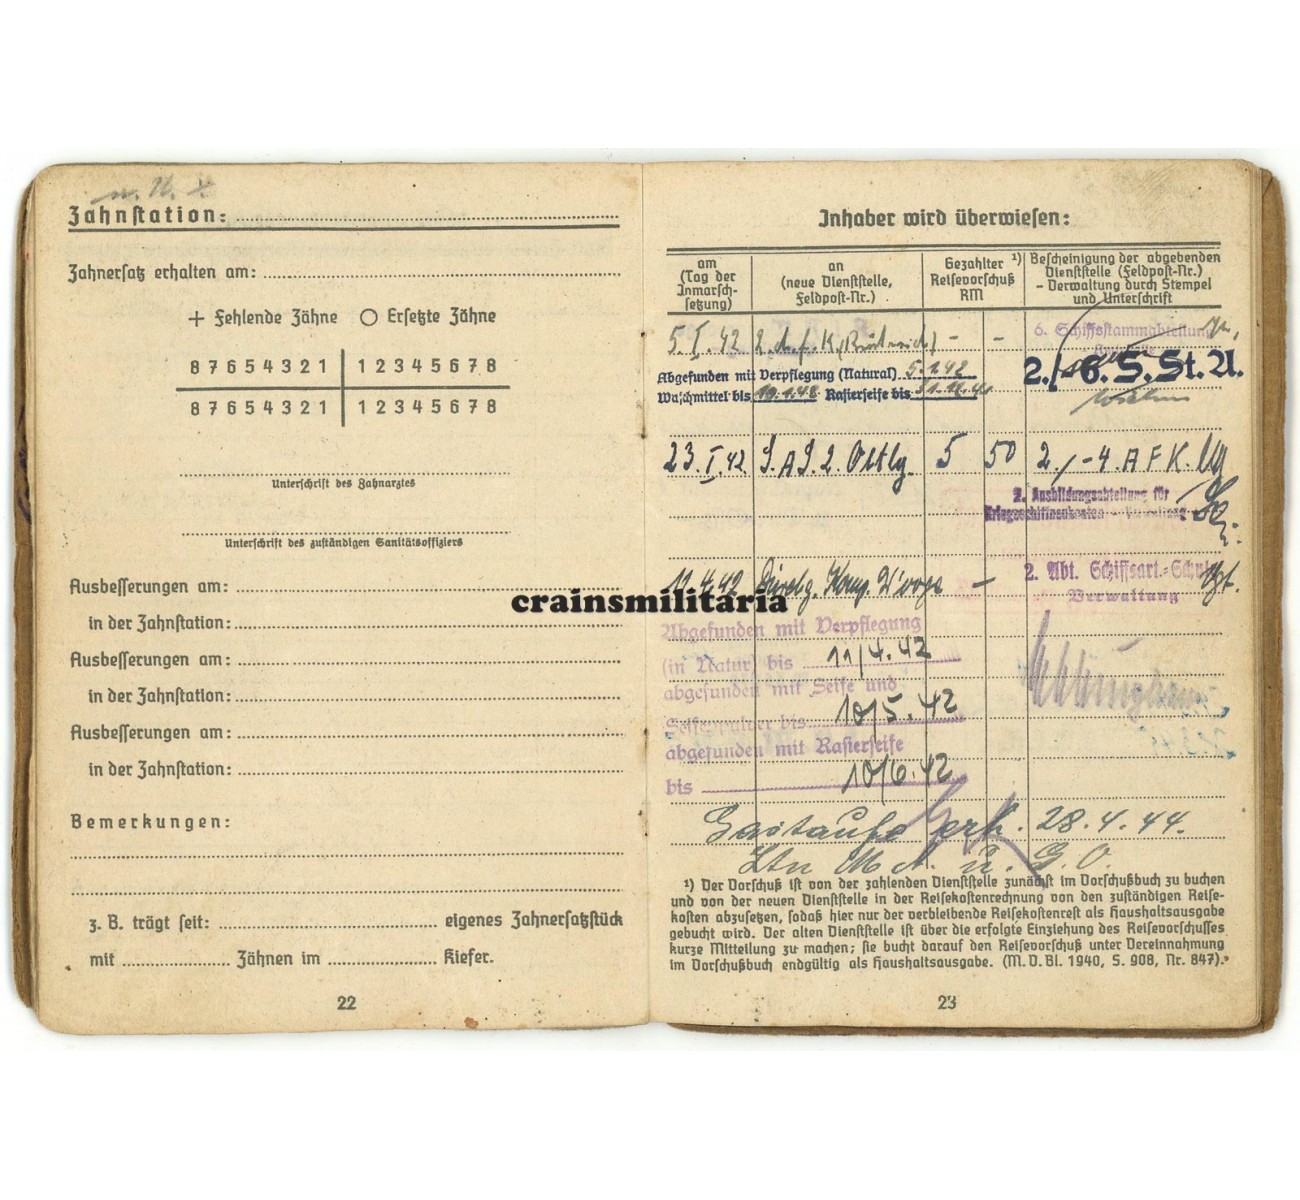 Zahnstation:
Zahnersatz erhalten am:
+ Fehlende Zähne O Ersetzte Zähne
8 7 6 5 4 3 2 1 1 2 3 4 5 6 7 8
8 7 6 5 4 3 2 1 1 2 3 4 5 6 7 8
Unterschrift des Zahnarztes
Unterschrift des zuständigen Sanitätsoffiziers
Ausbesserungen am:
in der Zahnstation:
Ausbesserungen am:
in der Zahnstation:
Ausbesserungen am:
in der Zahnstation:
Bemerkungen:
z. B. trägt seit: eigenes Zahnersatzstück
mit Zähnen im Kiefer.
22
Inhaber wird überwiesen:
am
(Tag der
Inmarsch-
setzung)
an
(neue Dienststelle,
Feldpost-Nr.)
Gezahlter ¹)
Reisevorschuß
RM
Bescheinigung der abgebenden
Dienststelle (Feldpost-Nr.)
- Verwaltung durch Stempel
und Unterschrift
5. I. 42 - -
6. Schiffsstammabteilung
2./6. S. St. A.
Abgefunden mit Verpflegung (Natural) 5.1.42
Waschmittel bis Rasierseife bis
23. I. 42 5 50 2./-4. A F K.
2. Ausbildungsabteilung für
12.4.42 -
2. Abt. Schiffsart.-Schule
Verwaltung
crainsmilitaria
Abgefunden mit Verpflegung
(in Natur) bis 11/4.42
abgefunden mit Seife und
Seifenpulver bis 10/5.42
abgefunden mit Rasierseife
bis 10/6.42
28.4.44.
¹) Der Vorschuß ist von der zahlenden Dienststelle zunächst im Vorschußbuch zu buchen
und von der neuen Dienststelle in der Reisekostenrechnung von den zuständigen Reise-
kosten abzusetzen, sodaß hier nur der verbleibende Reisekostenrest als Haushaltsausgabe
gebucht wird. Der alten Dienststelle ist über die erfolgte Einziehung des Reisevorschusses
kurze Mitteilung zu machen; sie bucht darauf den Reisevorschuß unter Vereinnahmung
im Vorschußbuch endgültig als Haushaltsausgabe. (M. D. Bl. 1940, S. 908, Nr. 847).
23